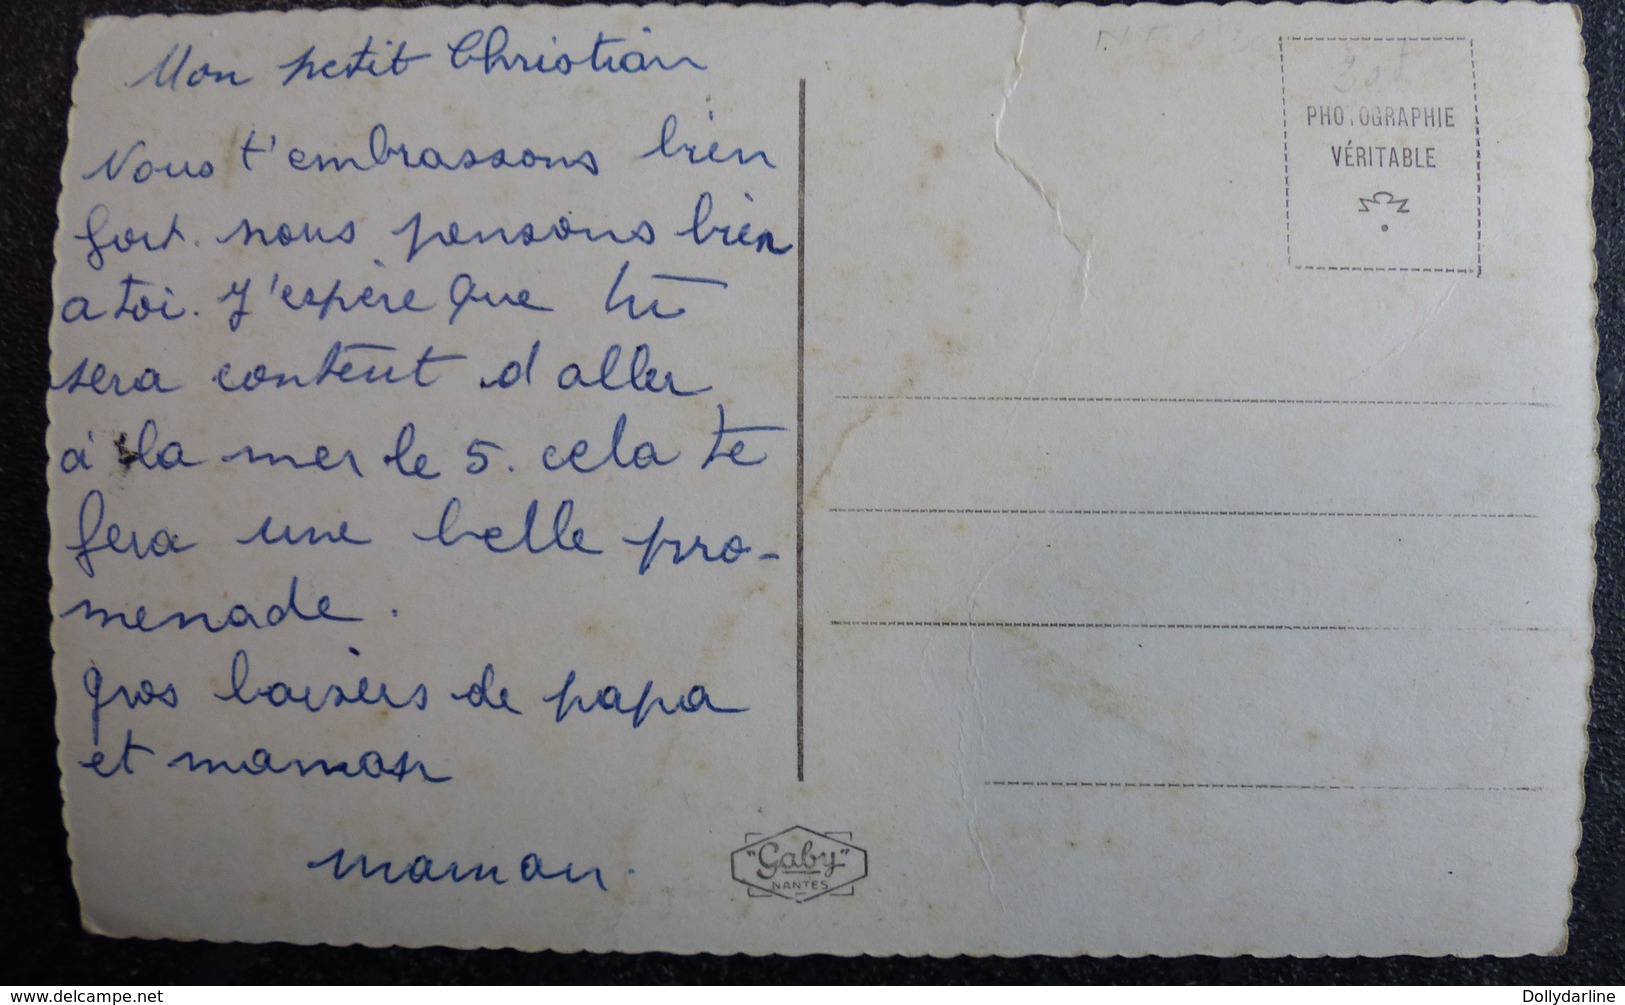 Mon petit Christian
Nous t'embrassons bien
fort. nous pensons bien
a toi. J'espère que tu
sera content d aller
à la mer le 5. cela te
fera une belle pro-
menade.
gros baisers de papa
et maman
maman.
PHOTOGRAPHIE
VÉRITABLE
"Gaby"
NANTES
Dollydarline
delcampe.net